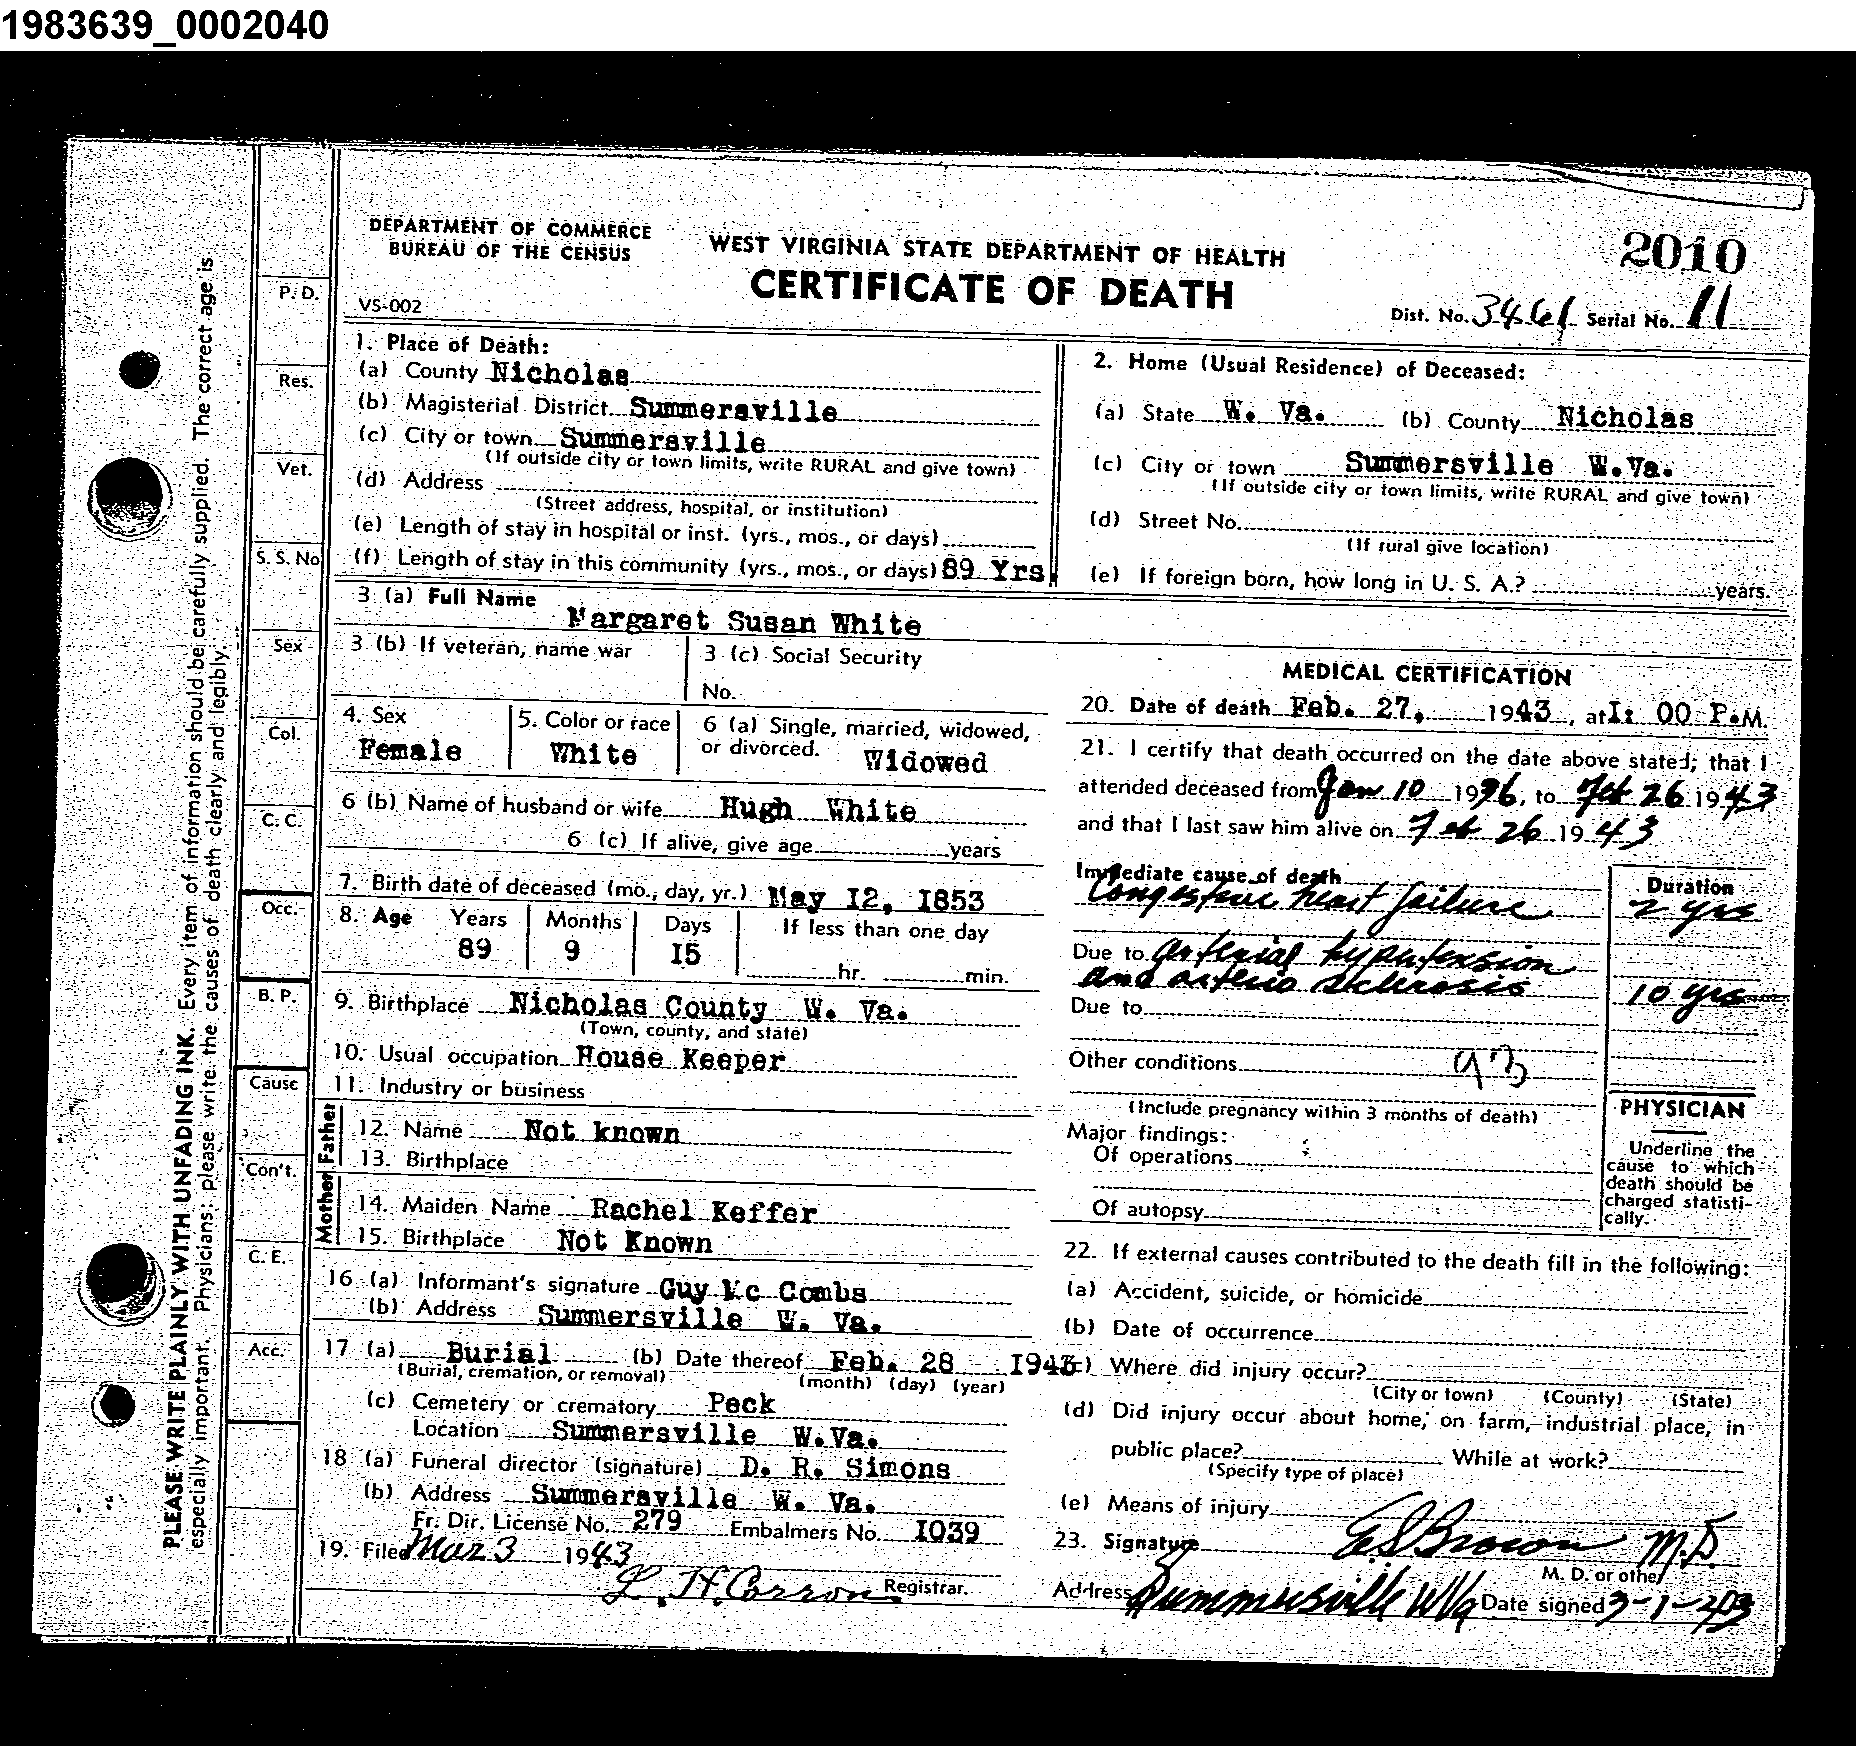 1983639_0002040
DEPARTMENT OF COMMERCE
BUREAU OF THE CENSUS
VS-002
WEST VIRGINIA STATE DEPARTMENT OF HEALTH
CERTIFICATE OF DEATH
2010
Dist. No. 3461 Serial No. 11
PLEASE WRITE PLAINLY WITH UNFADING INK. Every item of information should be carefully supplied. The correct age is
especially important. Physicians: please write the causes of death clearly and legibly.
P. D.
Res.
Vet.
S. S. No
Sex
Col.
C. C.
Occ.
B. P.
Cause
Con't.
C. E.
Acc.
1. Place of Death:
(a) County Nicholas
(b) Magisterial District Summersville
(c) City or town Summersville
(If outside city or town limits, write RURAL and give town)
(d) Address
(Street address, hospital, or institution)
(e) Length of stay in hospital or inst. (yrs., mos., or days)
(f) Length of stay in this community (yrs., mos., or days) 89 Yrs.
2. Home (Usual Residence) of Deceased:
(a) State W. Va. (b) County Nicholas
(c) City or town Summersville W.Va.
(If outside city or town limits, write RURAL and give town)
(d) Street No.
(If rural give location)
(e) If foreign born, how long in U. S. A.? years.
3 (a) Full Name Margaret Susan White
3 (b) If veteran, name war
3 (c) Social Security
No.
4. Sex
Female
5. Color or race
White
6 (a) Single, married, widowed,
or divorced. Widowed
6 (b) Name of husband or wife Hugh White
6 (c) If alive, give age years
7. Birth date of deceased (mo., day, yr.) May I2, I853
8. Age Years Months Days If less than one day
89 9 I5 hr. min.
9. Birthplace Nicholas County W. Va.
(Town, county, and state)
10. Usual occupation House Keeper
11. Industry or business
Father
12. Name Not known
13. Birthplace
Mother
14. Maiden Name Rachel Keffer
15. Birthplace Not Known
16 (a) Informant's signature Guy Mc Combs
(b) Address Summersville W. Va.
17 (a) Burial (b) Date thereof Feb. 28 I943
(Burial, cremation, or removal) (month) (day) (year)
(c) Cemetery or crematory Peck
Location Summersville W.Va.
18 (a) Funeral director (signature) D. R. Simons
(b) Address Summersville W. Va.
Fr. Dir. License No. 279 Embalmers No. I039
19. Filed Mar 3 1943
L. H. Corron Registrar.
MEDICAL CERTIFICATION
20. Date of death Feb. 27, 1943, at I: 00 P.M.
21. I certify that death occurred on the date above stated; that I
attended deceased from Jan 10 1936, to Feb 26 1943
and that I last saw him alive on Feb 26 1943
Immediate cause of death
Congestive heart failure
Duration
2 yrs
Due to arterial hypertension
and arterio sclerosis
10 yrs
Due to
Other conditions 93
(Include pregnancy within 3 months of death)
Major findings:
Of operations
Of autopsy
PHYSICIAN
Underline the
cause to which
death should be
charged statisti-
cally.
22. If external causes contributed to the death fill in the following:
(a) Accident, suicide, or homicide
(b) Date of occurrence
(c) Where did injury occur?
(City or town) (County) (State)
(d) Did injury occur about home, on farm, industrial place, in
public place? While at work?
(Specify type of place)
(e) Means of injury
23. Signature E S Brown M.D.
M. D. or other
Address Summersville W Va Date signed 3-1-43